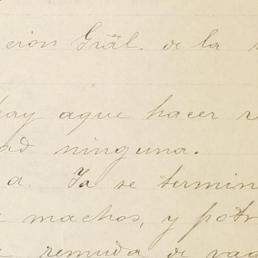 cion Gräl. de la
hay aque hacer
ad ninguna.
a. Ya se termin
machos, y potr
remuda de vag